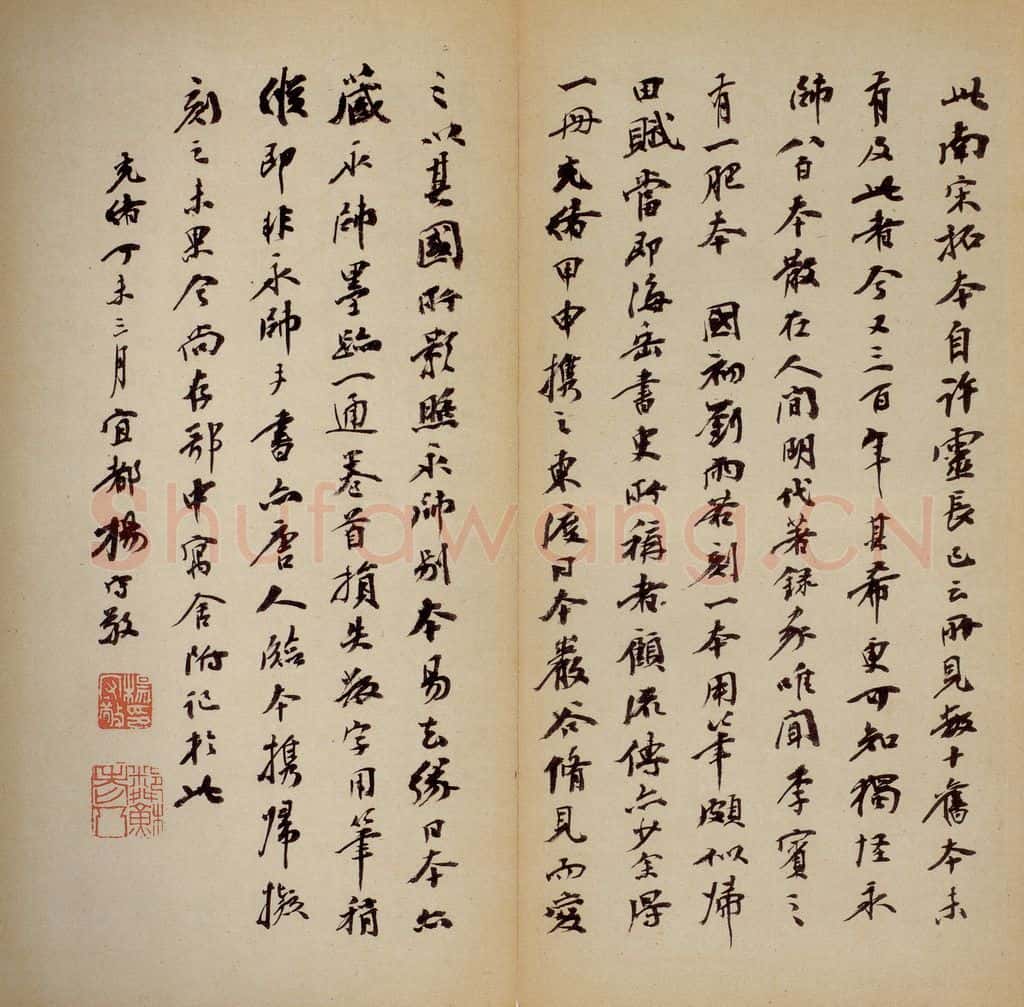 此南宋拓本自許靈長已云所見數十舊本未
有及此者今又三百年其希更可知獨怪永
師八百本散在人間明代著錄家唯聞李賓之
有一肥本 國初劉雨若刻一本用筆頗似歸
田賦當即海岳書史所稱者顧流傳亦少余得
一冊光緒甲申携之東渡日本嚴谷脩見而愛
之以其國所影照永師別本易去緣日本亦
藏永師墨跡一通卷首損失數字用筆稍
後即非永師手書亦唐人臨本携歸擬
刻之未果今尚存鄂中寓舍附記於此
光緒丁未三月宜都楊守敬
楊守敬印
鄰蘇老人
Shufawang.CN